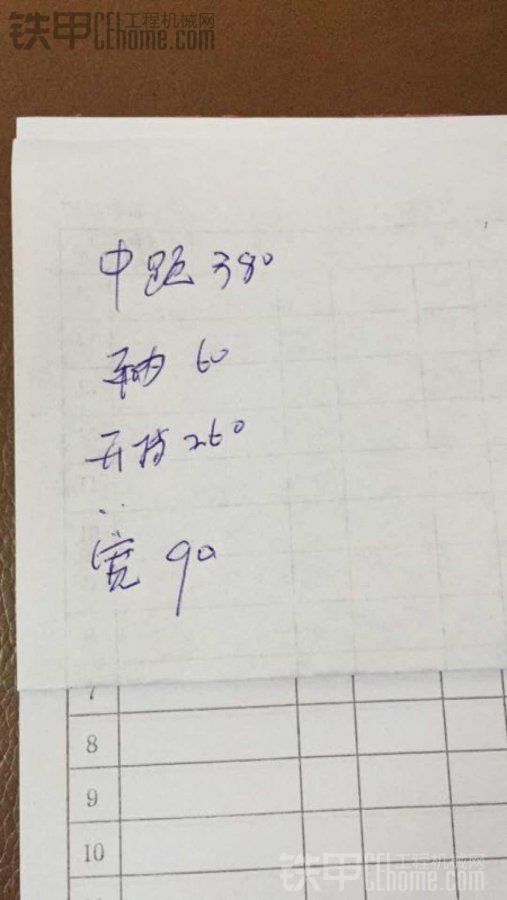 铁甲 工程机械网
CEhome.com
中距 380
轴 60
开档 260
宽 90
7
8
9
10
铁甲 工程机械网
CEhome.com